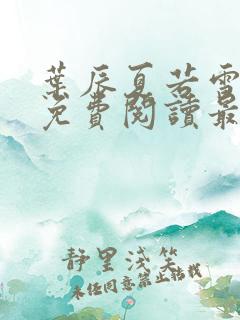 葉辰夏若雪
免費閱讀最
靜里淺笑
未經同意禁止轉載